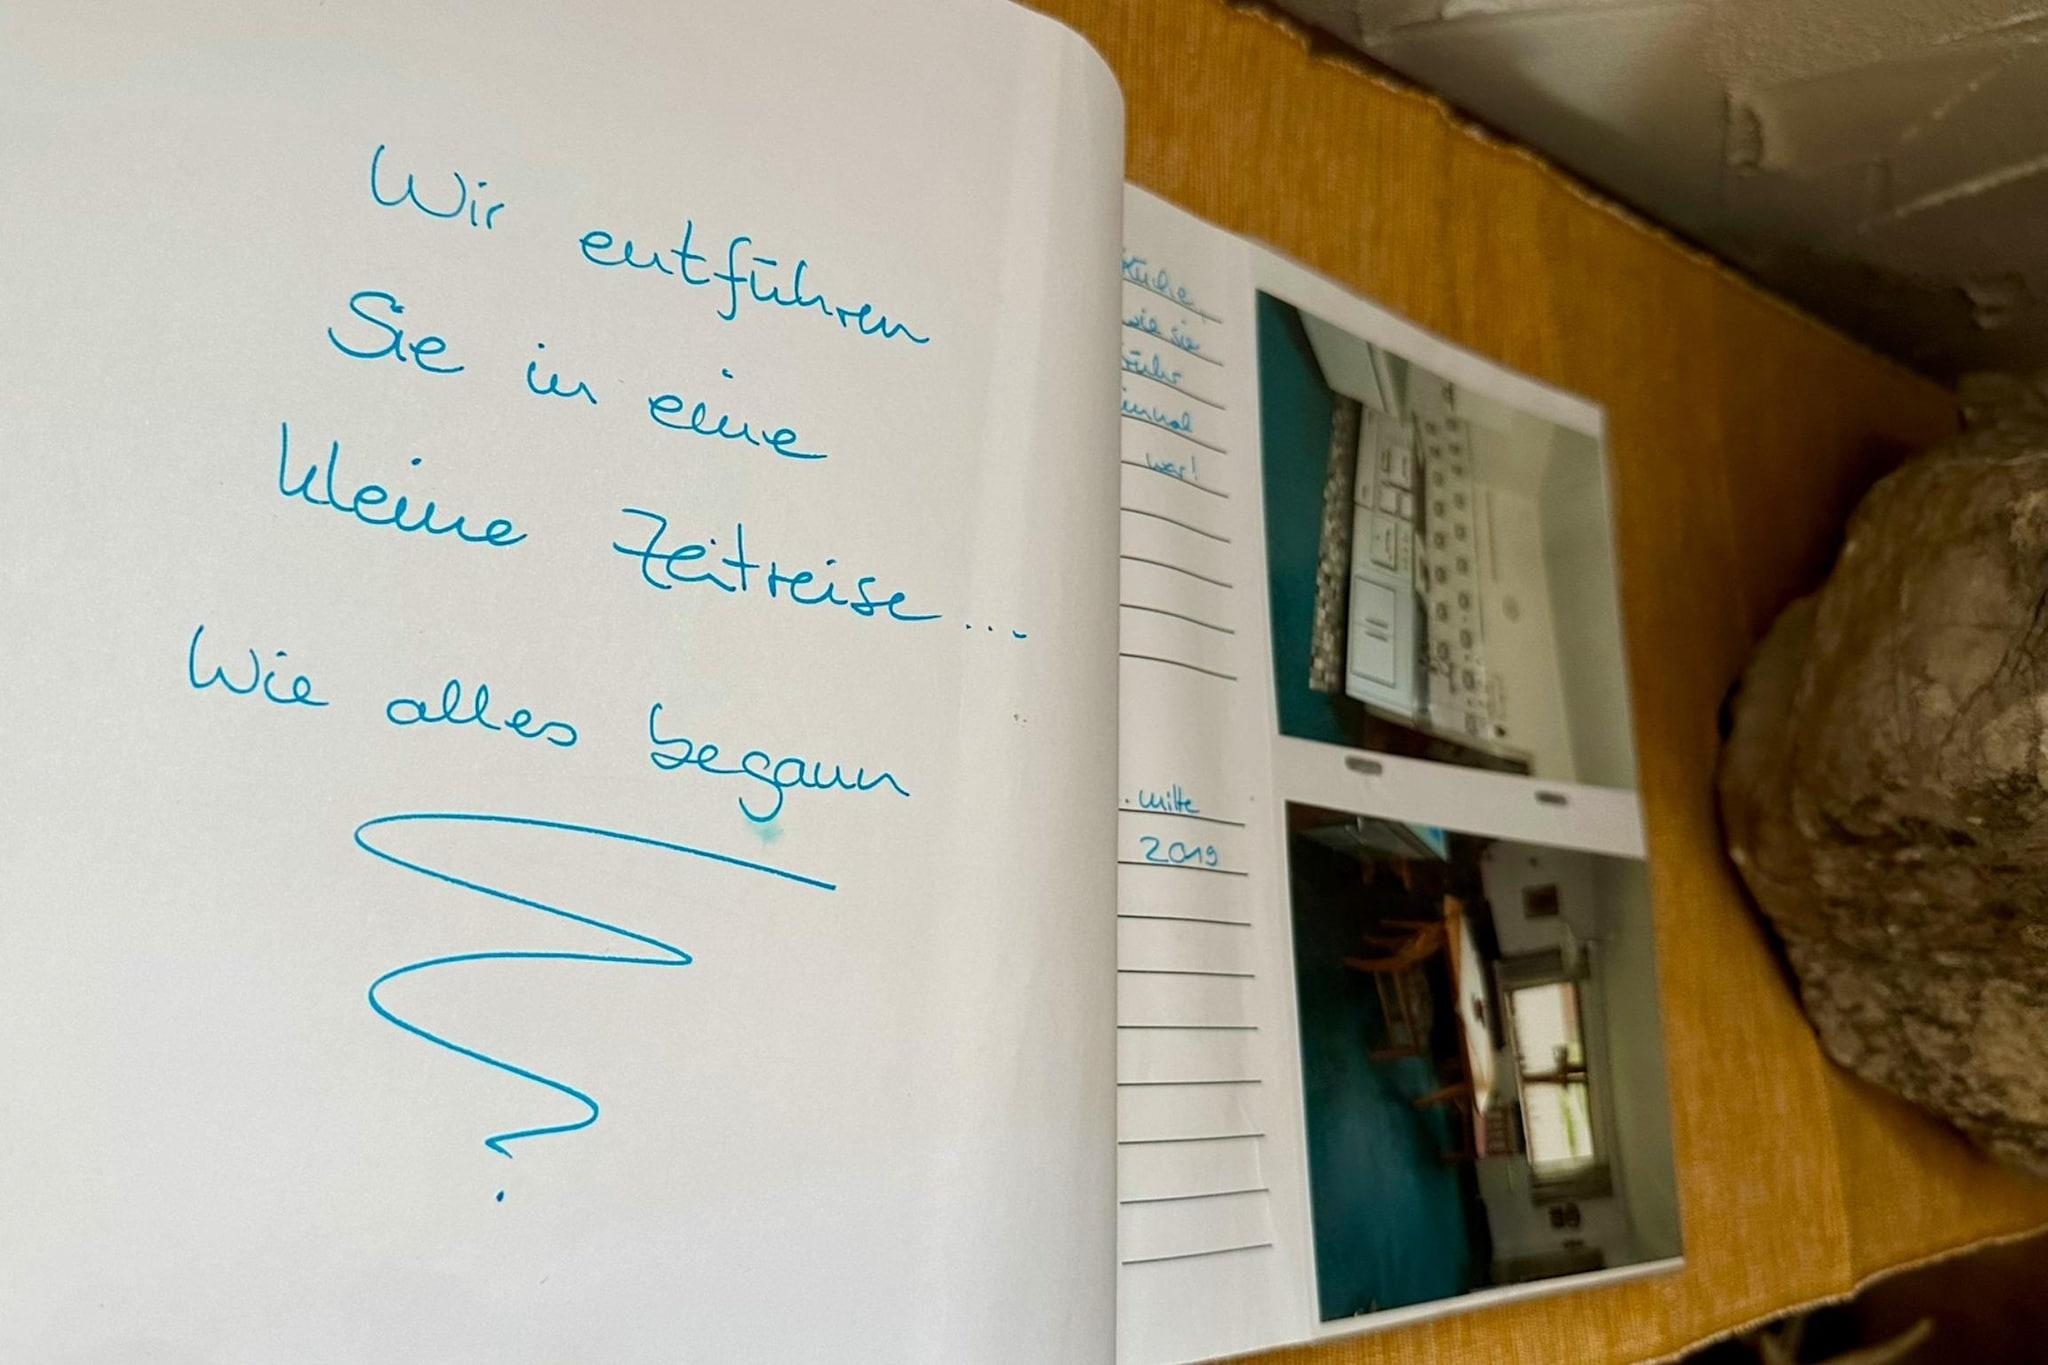 Wir entführen
Sie in eine
kleine Zeitreise...
Wie alles begann
?
Küche,
wie sie
früher
einmal
war!
. mitte
2019